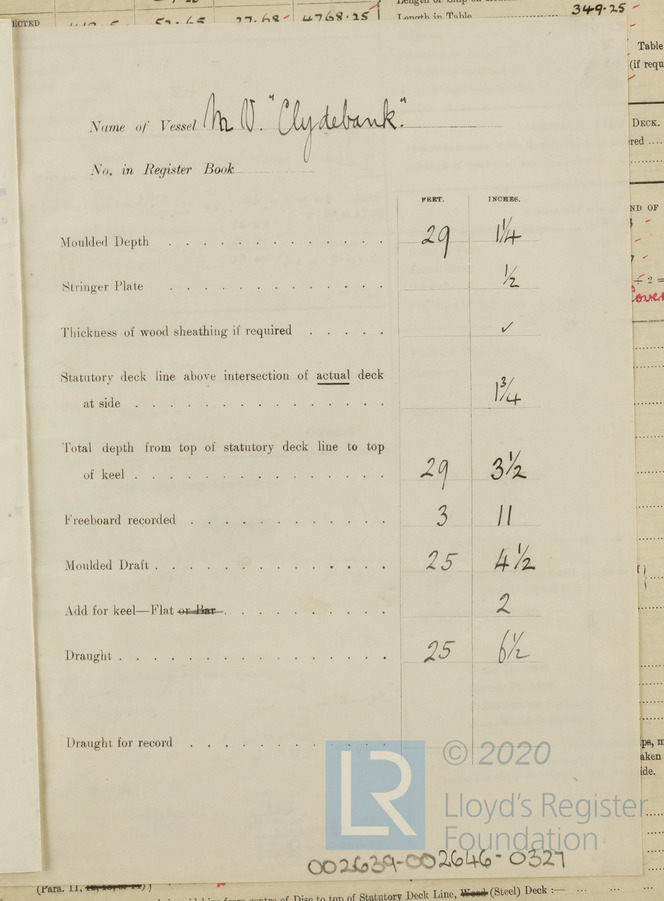 ECTED 52.65 27.68 4768.25
Length in Table 349.25
Table
(if requ
DECK.
red ....
ND OF
÷ 2 =
Cover
Name of Vessel M.V. "Clydebank."
No. in Register Book
FEET. INCHES.
Moulded Depth . . . . . . . . . . . . . 29 1¼
Stringer Plate . . . . . . . . . . . . . ½
Thickness of wood sheathing if required . . . . . ✓
Statutory deck line above intersection of actual deck
at side . . . . . . . . . . . . . . 1¾
Total depth from top of statutory deck line to top
of keel . . . . . . . . . . . . . . 29 3½
Freeboard recorded . . . . . . . . . . . 3 11
Moulded Draft . . . . . . . . . . . . . 25 4½
Add for keel—Flat or Bar . . . . . . . . . 2
Draught . . . . . . . . . . . . . . . 25 6½
Draught for record . . . . . . . . . . .
LR © 2020
Lloyd's Register
Foundation
ps, m
aken
ide.
002639-002646-0327
(Para. 11,
centre of Disc to top of Statutory Deck Line, Wood (Steel) Deck :—